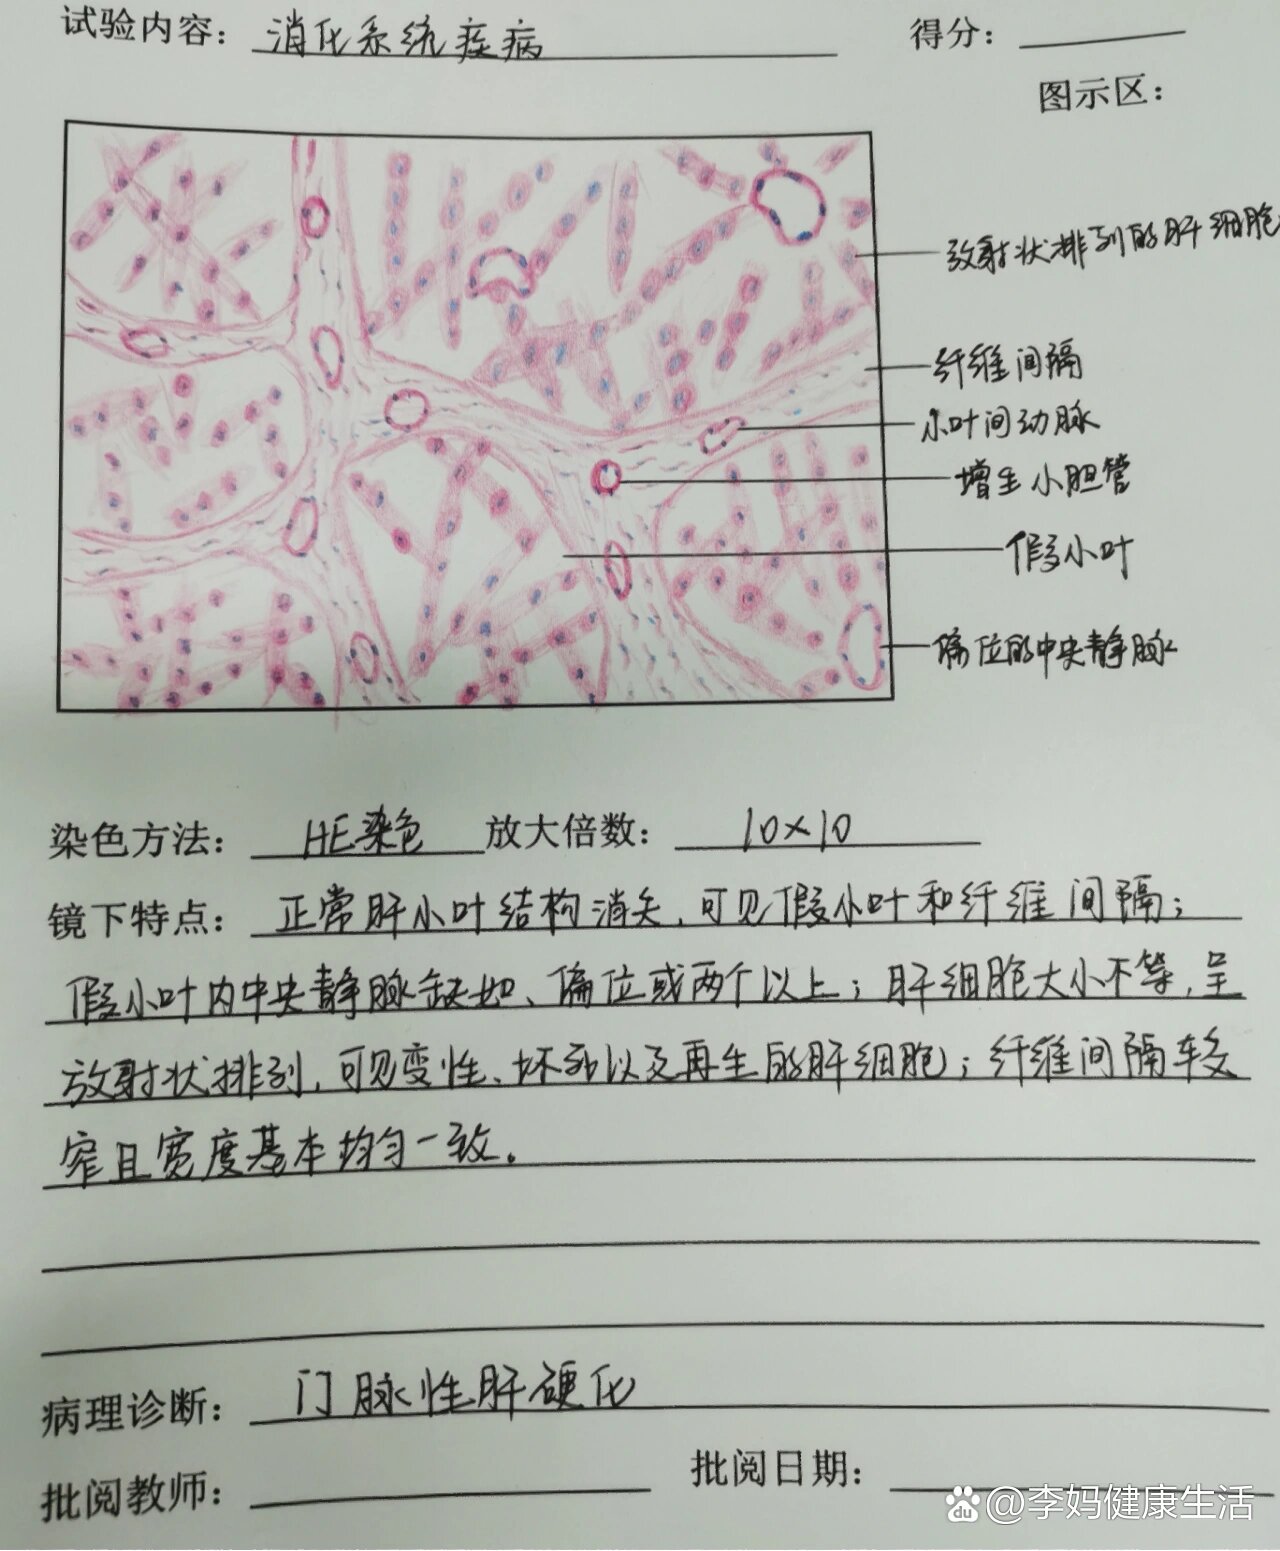 试验内容：消化系统疾病 得分：
图示区：
放射状排列的肝细胞
纤维间隔
小叶间动脉
增生小胆管
假小叶
偏位的中央静脉
染色方法：HE染色 放大倍数：10×10
镜下特点：正常肝小叶结构消失，可见假小叶和纤维间隔；
假小叶内中央静脉缺如、偏位或两个以上；肝细胞大小不等，呈
放射状排列，可见变性、坏死以及再生的肝细胞；纤维间隔较
窄且宽度基本均匀一致。
病理诊断：门脉性肝硬化
批阅教师： 批阅日期：
du @李妈健康生活